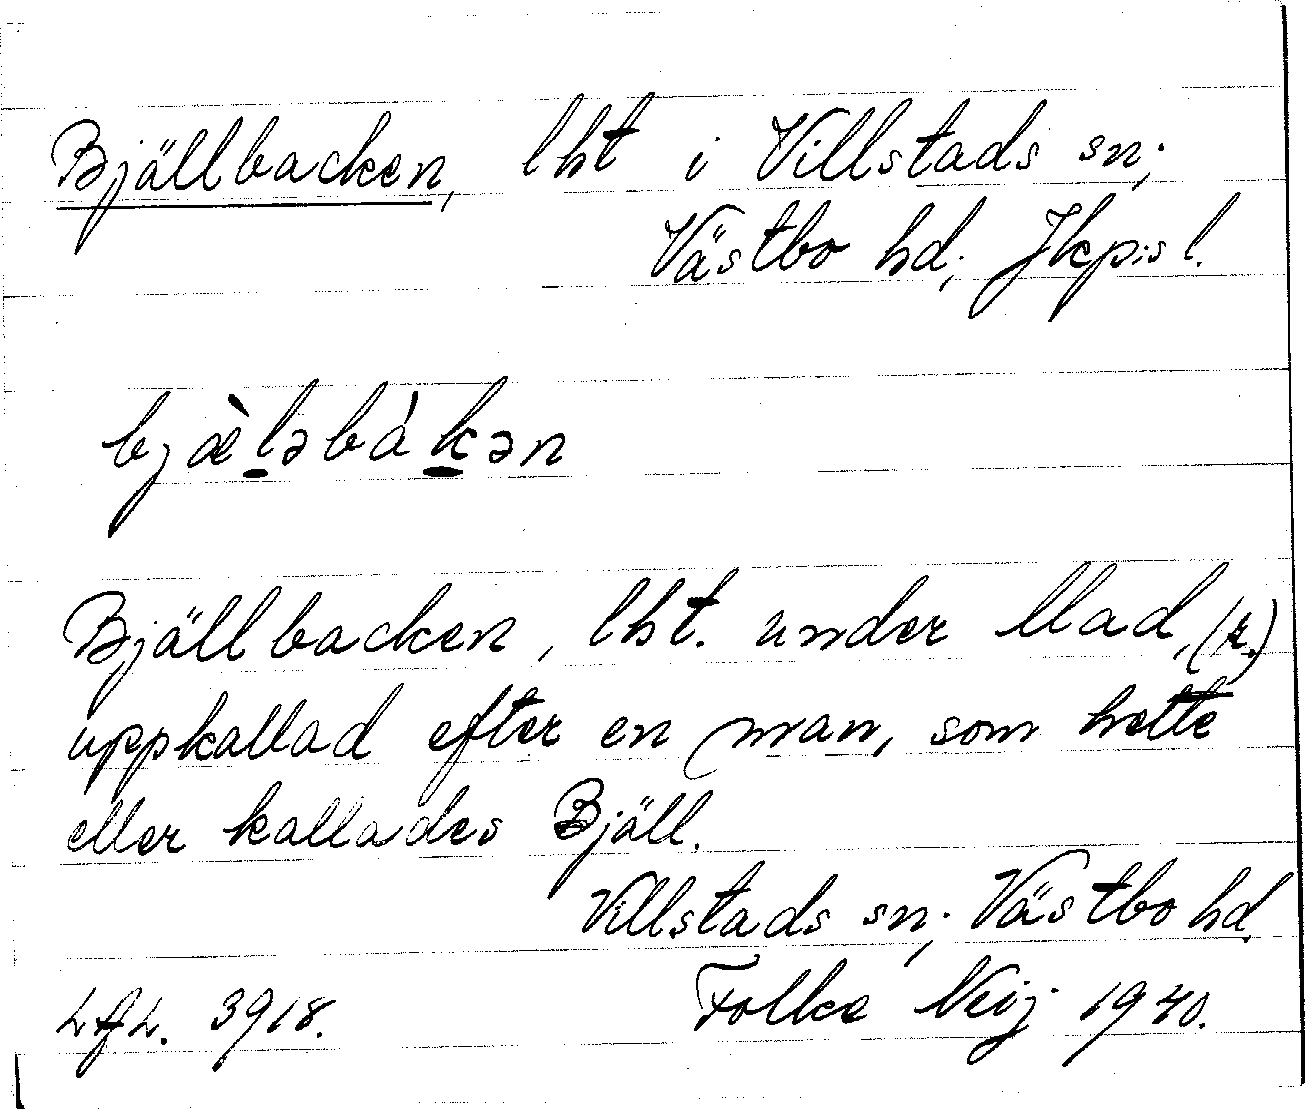 Bjällbacken, lht i Villstads sn;
Västbo hd; Jkpis l.
bjæ̀l̠əbàk̠ən
Bjällbacken, lht. under Mad, (r.)
uppkallad efter en man, som hette
eller kallades Bjäll.
Villstads sn; Västbo hd.
Folke Neij 1940.
3918.